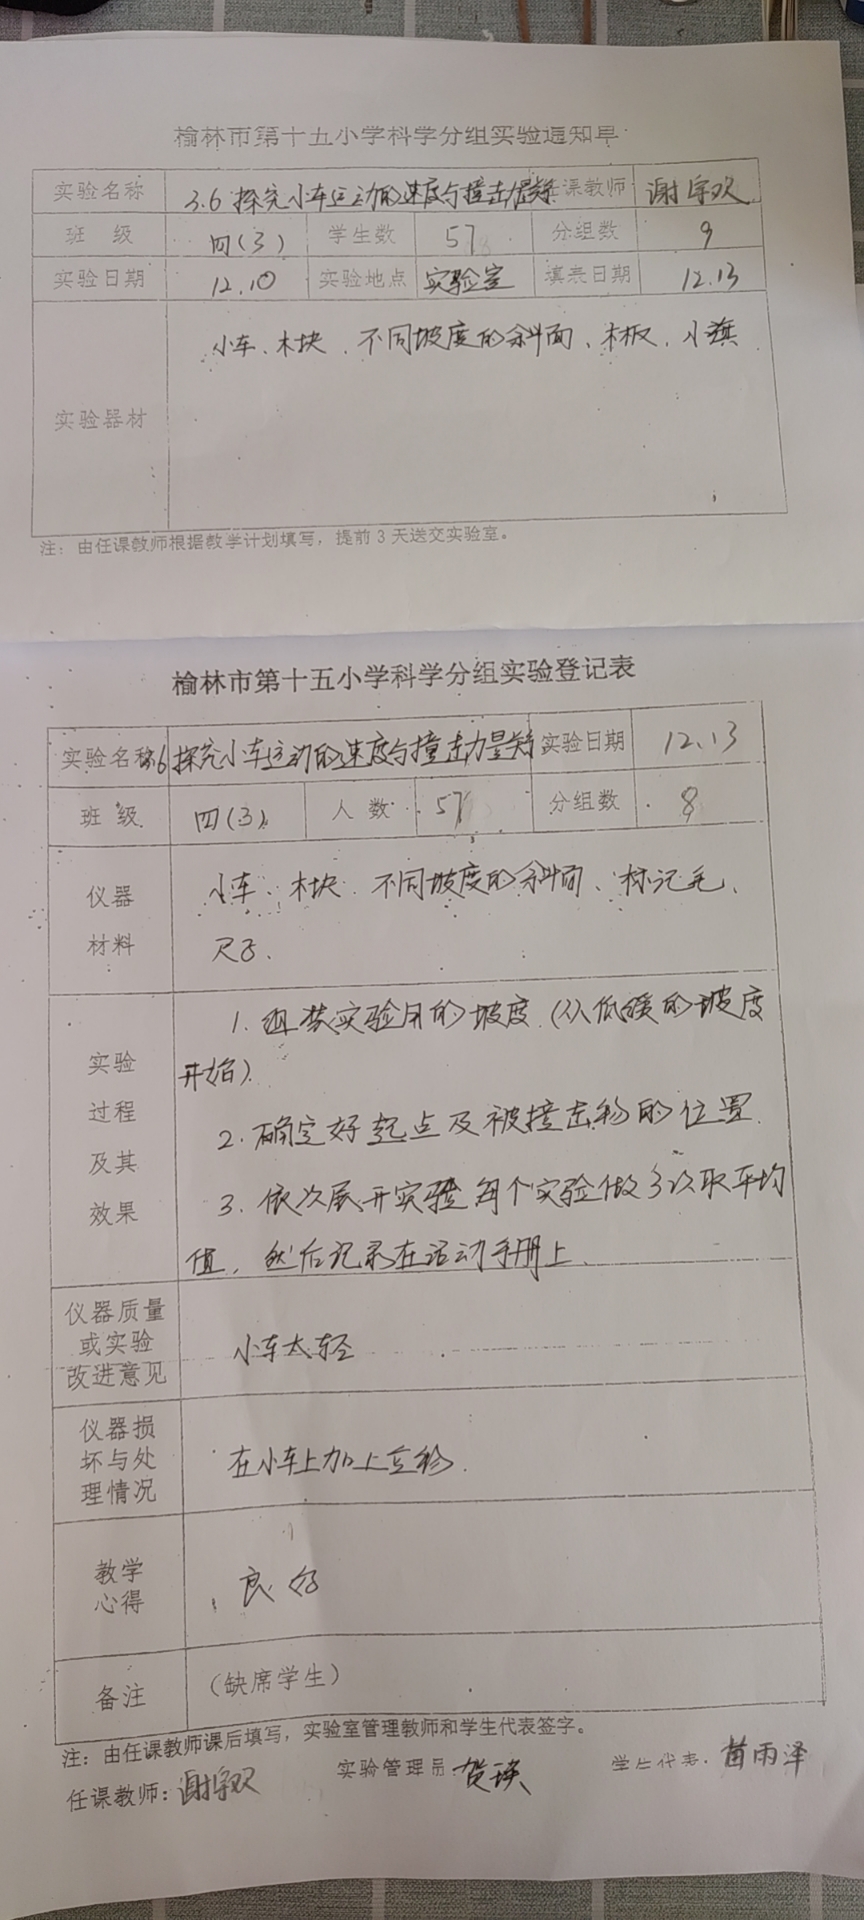 榆林市第十五小学科学分组实验通知单
实验名称 3.6 探究小车运动的速度与撞击力 任课教师 谢宇欢
班 级 四(3) 学生数 57 分组数 9
实验日期 12.10 实验地点 实验室 填表日期 12.13
小车、木块、不同坡度的斜面、木板、小旗
实验器材
注：由任课教师根据教学计划填写，提前 3 天送交实验室。
榆林市第十五小学科学分组实验登记表
实验名称 3.6 探究小车运动的速度与撞击力 实验日期 12.13
班 级 四(3) 人 数 57 分组数 8
仪器 小车、木块、不同坡度的斜面、标记毛、
材料 尺子.
1. 组装实验用的坡度.(从低缓的坡度
实验 开始).
过程 2. 确定好起点及被撞击物的位置.
及其 3. 依次展开实验 每个实验做多次取平均
效果 值, 然后记录在活动手册上.
仪器质量
或实验 小车太轻
改进意见
仪器损
坏与处 在小车上加上重物.
理情况
教学 良好
心得
备注 （缺席学生）
注：由任课教师课后填写，实验室管理教师和学生代表签字。
任课教师：谢宇欢 实验管理员：贺瑛 学生代表：苗雨泽